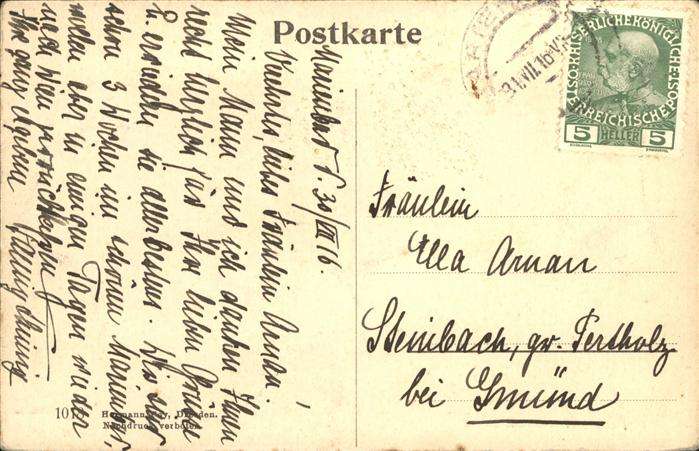 Postkarte
Marienbad d. 30/VII 16.
Verehrtes, liebes Fräulein Arnau!
Mein Mann und ich danken Ihnen
recht herzlich für Ihre lieben Grüße
& erwidern sie allerbestens. Wir sind
schon 3 Wochen im schönen Marienbad,
wollen aber in einigen Tagen wieder
nach Wien zurückkehren.
Ihre ganz ergebene
31.VII.16
KAISERLICHE KÖNIGLICHE
ÖSTERREICHISCHE POST
5 HELLER 5
Fräulein
Ella Arnau
Steinbach, gr. Pertholz
bei Gmünd
Hermann Poy, Dresden.
Nachdruck verboten.